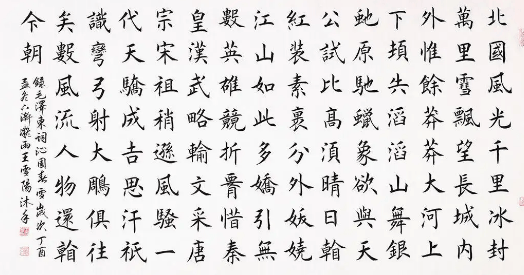 北國風光千里冰封
萬里雪飄望長城內
外惟餘莽莽大河上
下頓失滔滔山舞銀
虵原馳蠟象欲與天
公試比高須晴日看
紅裝素裹分外妖嬈
江山如此多嬌引無
數英雄競折腰惜秦
皇漢武略輸文采唐
宗宋祖稍遜風騷一
代天驕成吉思汗祇
識彎弓射大鵰俱往
矣數風流人物還看
今朝
錄毛澤東詞沁園春雪歲次丁酉
孟冬 雨王雪陽沐手